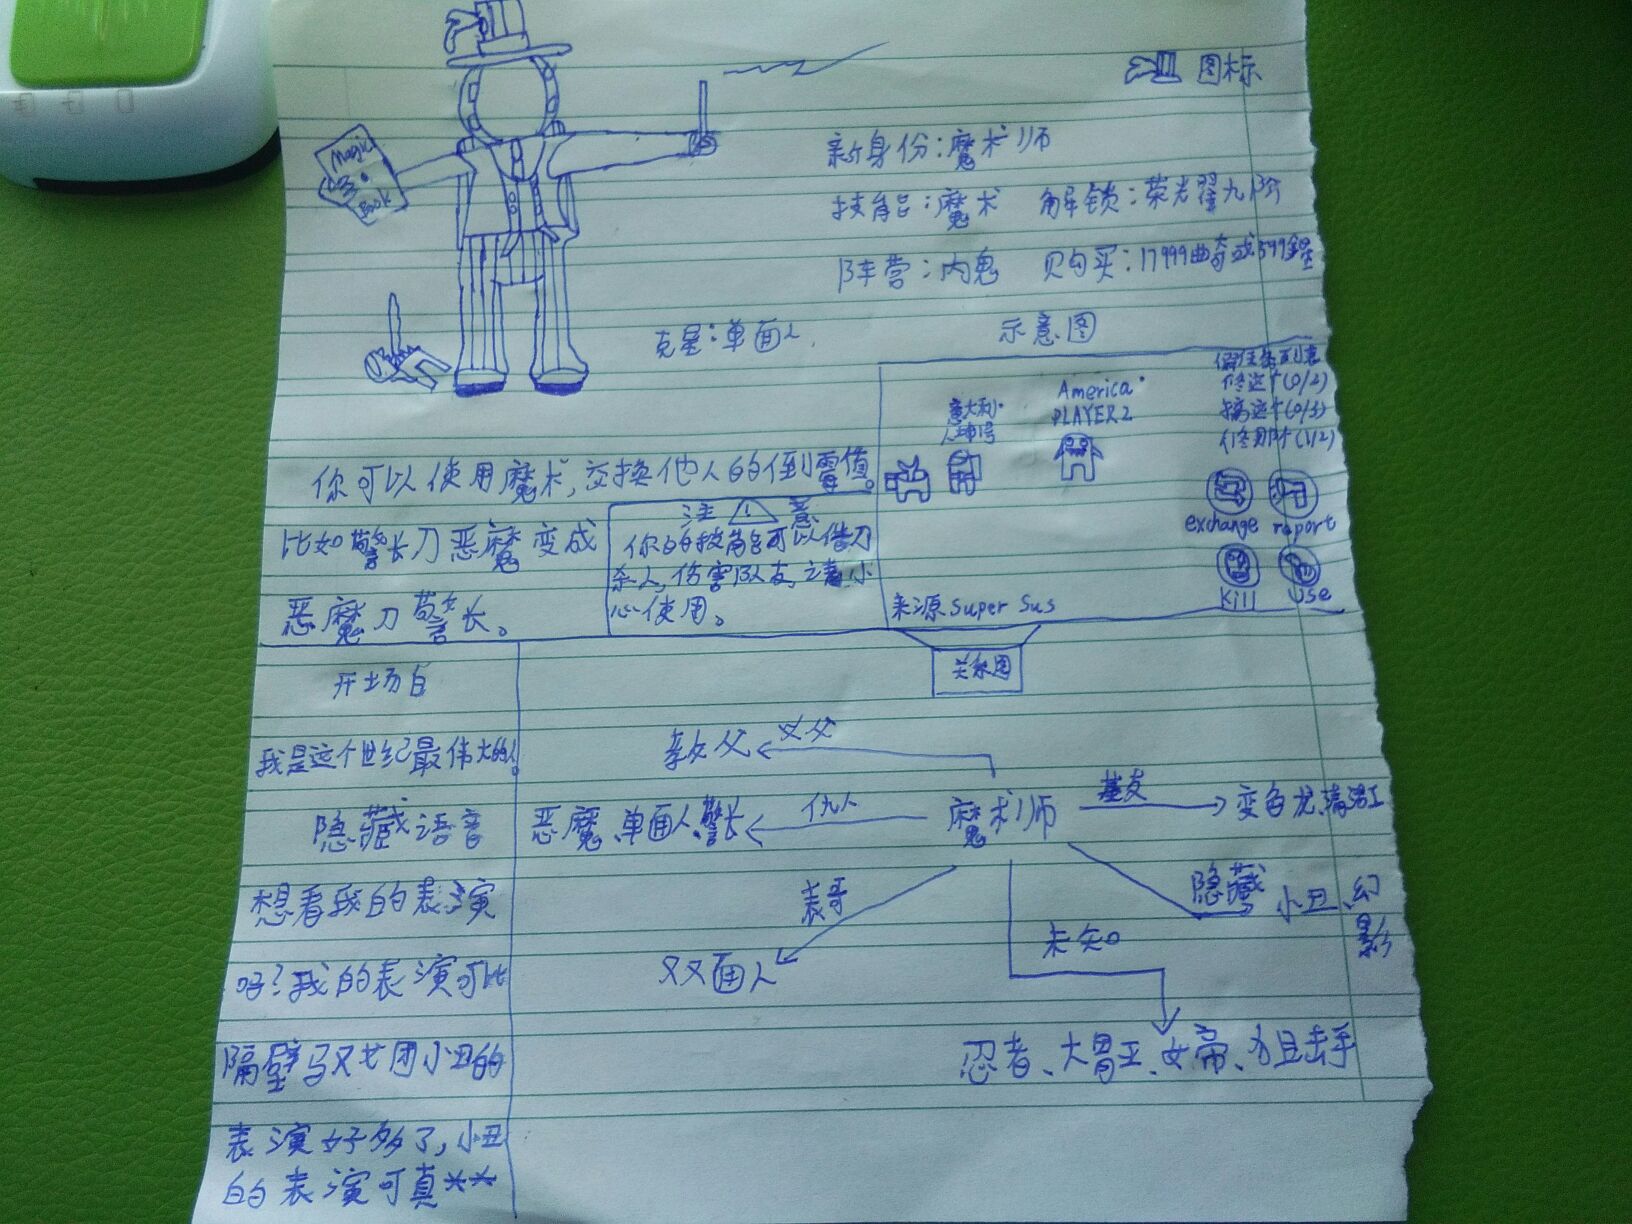 图标
Magic
Book
新身份:魔术师
技能:魔术 解锁:荣光翟九阶
阵营:内鬼 购买:17999曲奇或599金星
克星:单面人
示意图
意大利
America
PLAYER2
修这个(0/2)
搞这个(0/3)
修那个(1/2)
exchange report
Kill Use
来源super Sus
你可以使用魔术,交换他人的倒霉值。
比如警长刀恶魔变成
恶魔刀警长。
注 ! 意
你的技能可以借刀
杀人,伤害队友,请小
心使用。
开场白
我是这个世纪最伟大的人。
隐藏语音
想看我的表演
吗?我的表演可比
隔壁马戏团小丑的
表演好多了,小丑
的表演可真**
关系图
教父 义父
恶魔、单面人、警长 仇人 魔术师 基友 变色龙、清洁工
表哥 隐藏 小丑、幻影
双面人 未知
忍者、大胃王、女帝、狙击手